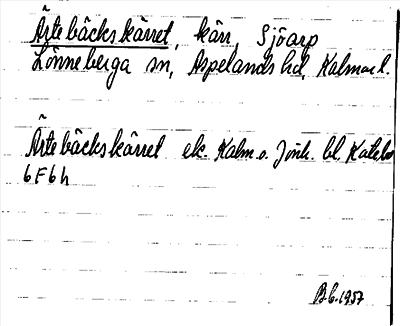 Ärtebäckskärret, kärr, Sjöarp
Lönneberga sn, Aspelands hd, Kalmar l.
Ärtebäckskärret ek. Kalm. o. Jönk. bl.
6F6h
1957